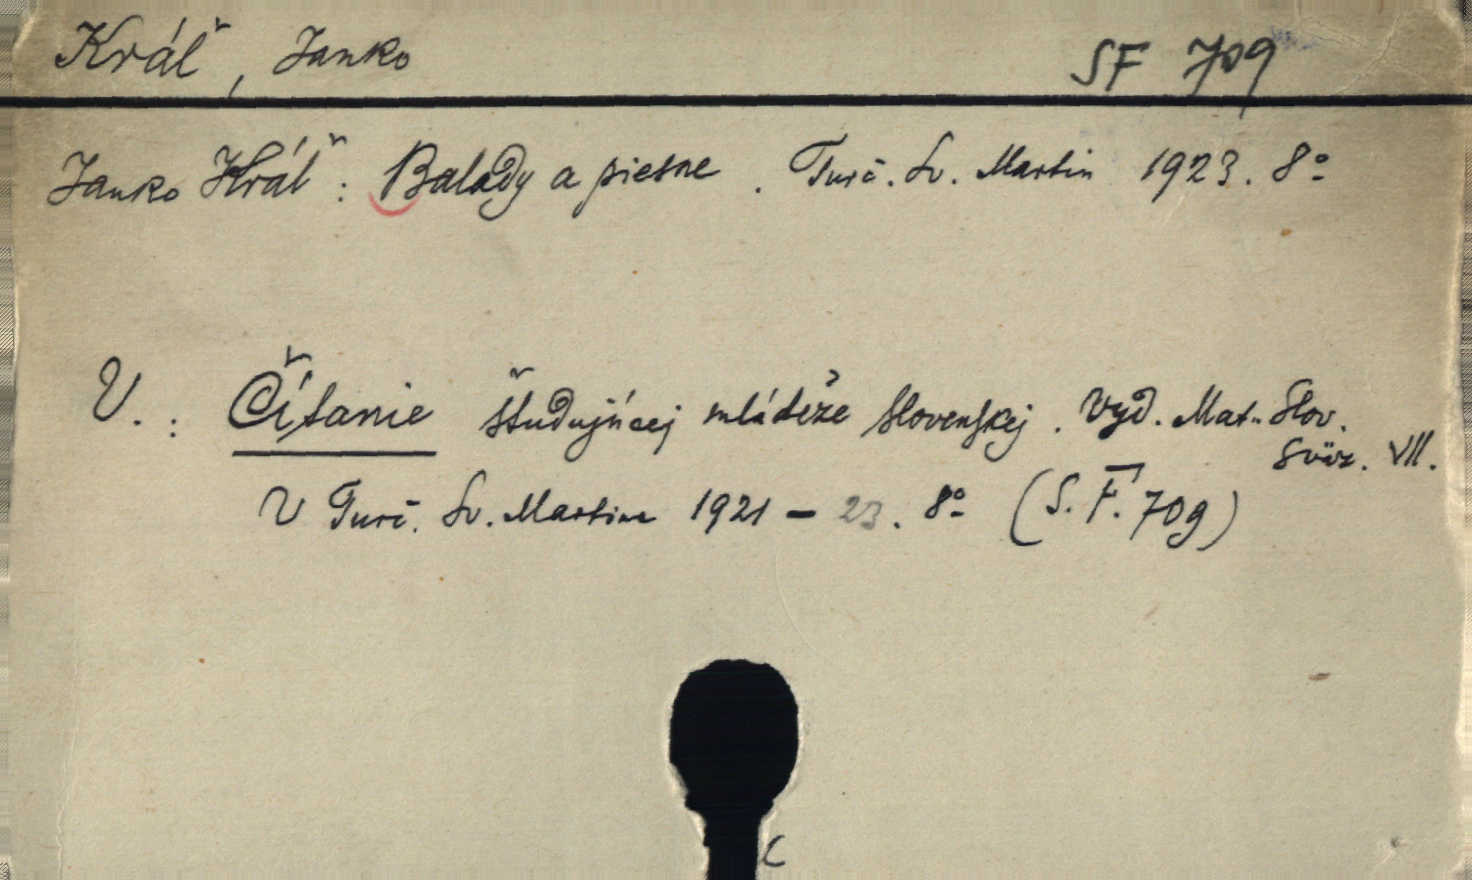 Kráľ, Janko SF 709
Janko Kráľ: Balady a piesne. Turč. Sv. Martin 1923. 8°
V.: Čítanie študujúcej mládeže slovenskej. Vyd. Mat. Slov.
Sväz. VII.
V Turč. Sv. Martine 1921 - 23. 8° (S. F. 709)